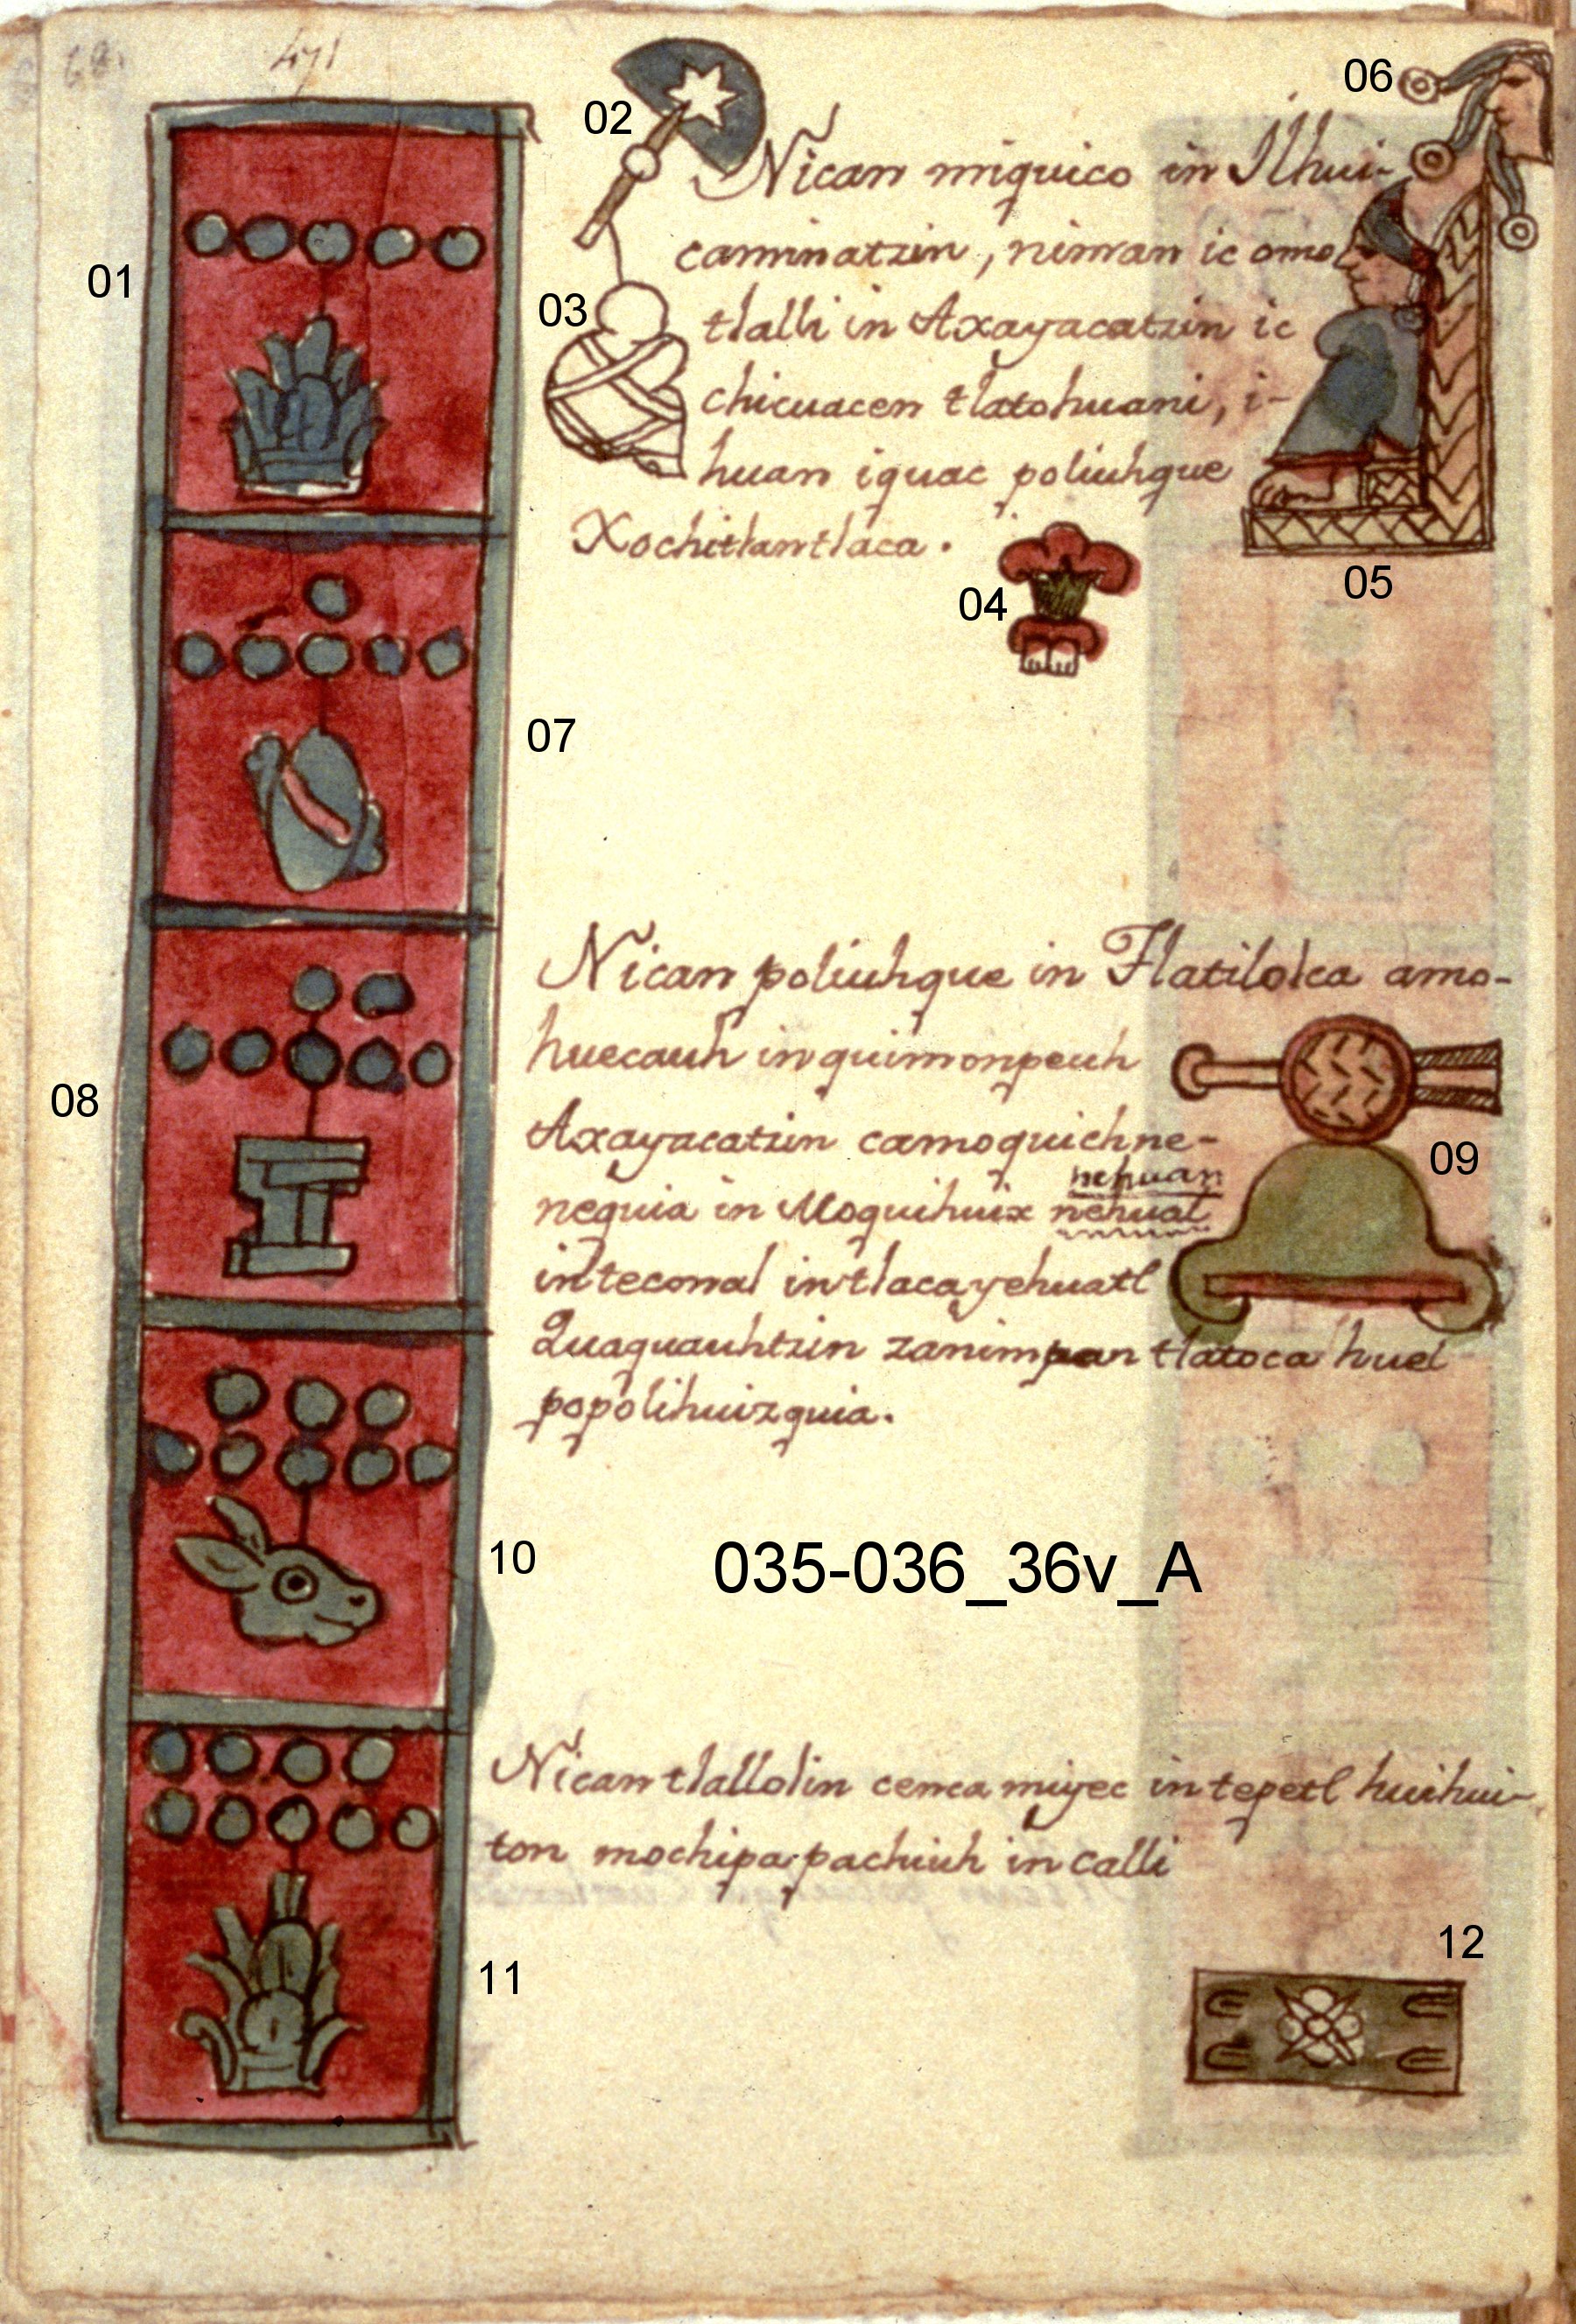 68.
471
02
06
Nican miquico in Ilhui-
caminatzin, niman ic omo
01
03
tlalli in Axayacatzin ic
chicuacen tlatohuani, i-
huan iquac poliuhque
Xochitlantlaca.
04
05
07
Nican poliuhque in Tlatilolca amo-
huecauh in quimonpeuh
08
Axayacatzin camoquichne-
09
nehuan
nequia in Moquihuix nehual
intecomal intlacayehuatl
Quaquauhtzin zanimpan tlatoca huel
popolihuizquia.
10
035-036_36v_A
Nican tlallolin cenca miyec in tepetl huihui-
ton mochipa pachiuh in calli
11
12